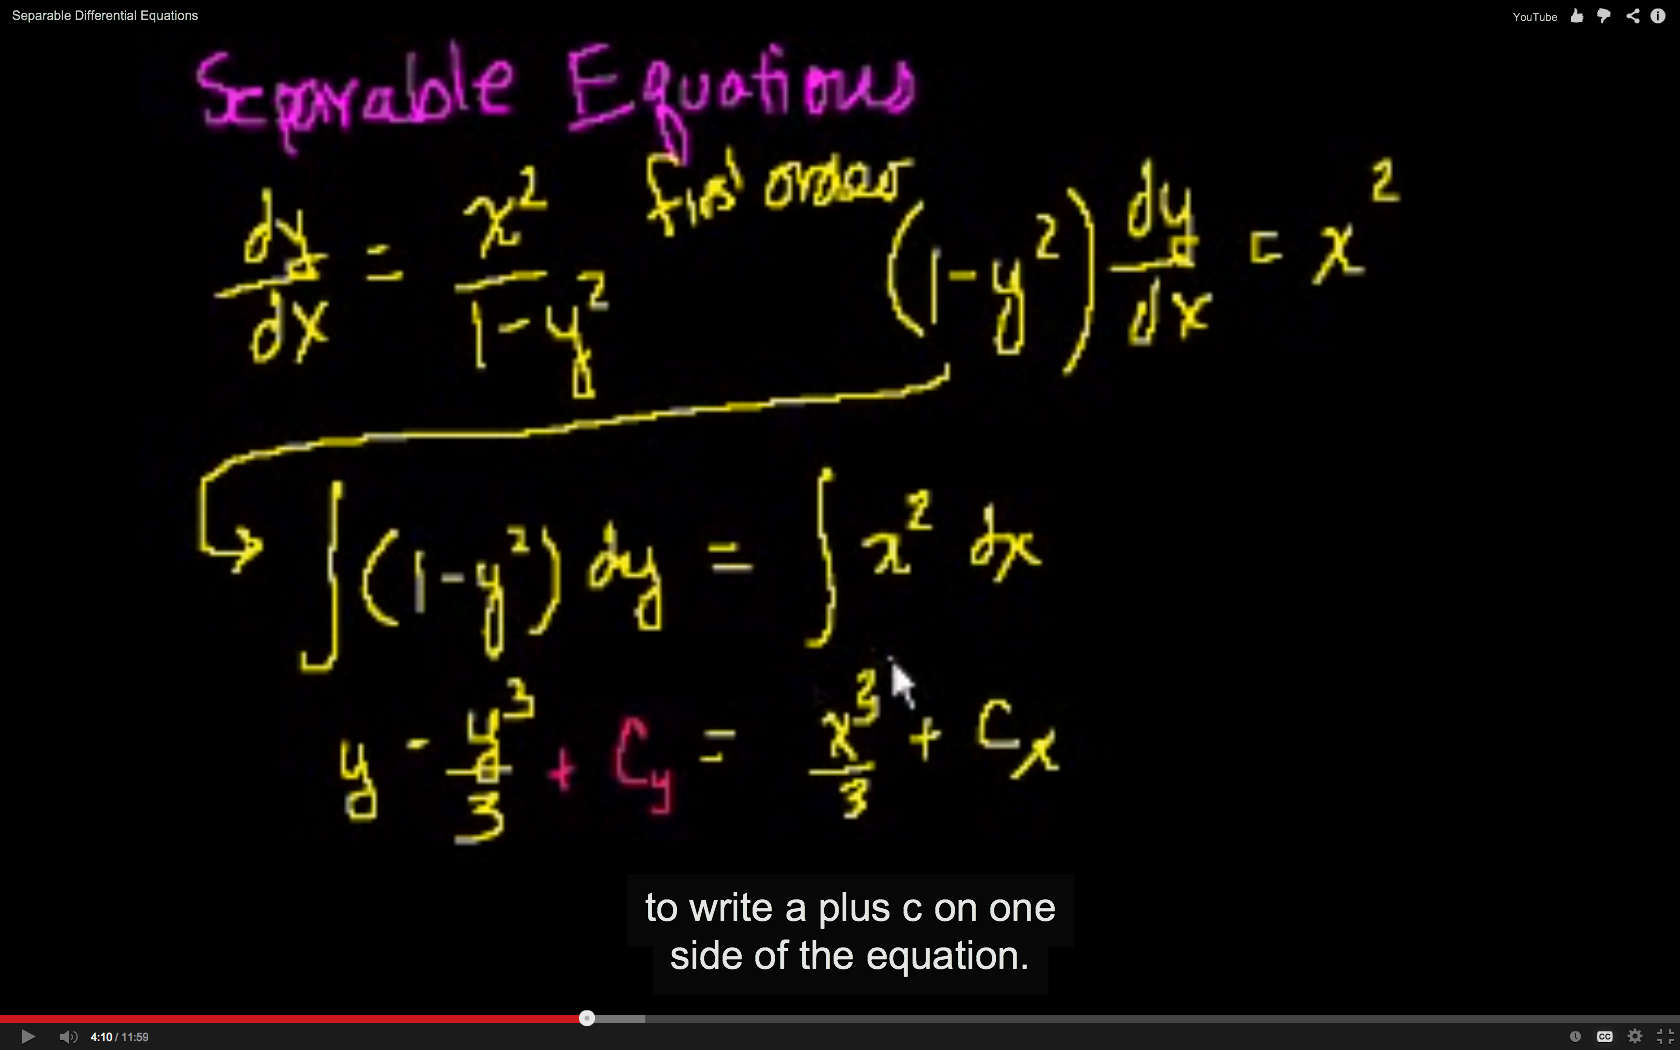 Separable Differential Equations
YouTube
Separable Equations
First order
dy/dx = x²/(1-y²)
(1-y²) dy/dx = x²
∫(1-y²) dy = ∫ x² dx
y - y³/3 + Cy = x³/3 + Cx
to write a plus c on one
side of the equation.
4:10 / 11:59
CC